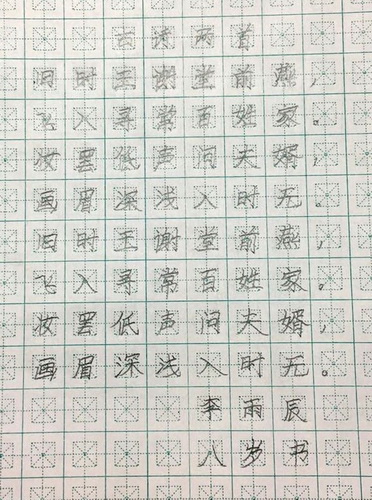 古诗两首
旧时王谢堂前燕，
飞入寻常百姓家。
妆罢低声问夫婿，
画眉深浅入时无。
旧时王谢堂前燕，
飞入寻常百姓家。
妆罢低声问夫婿，
画眉深浅入时无。
李雨辰
八岁书